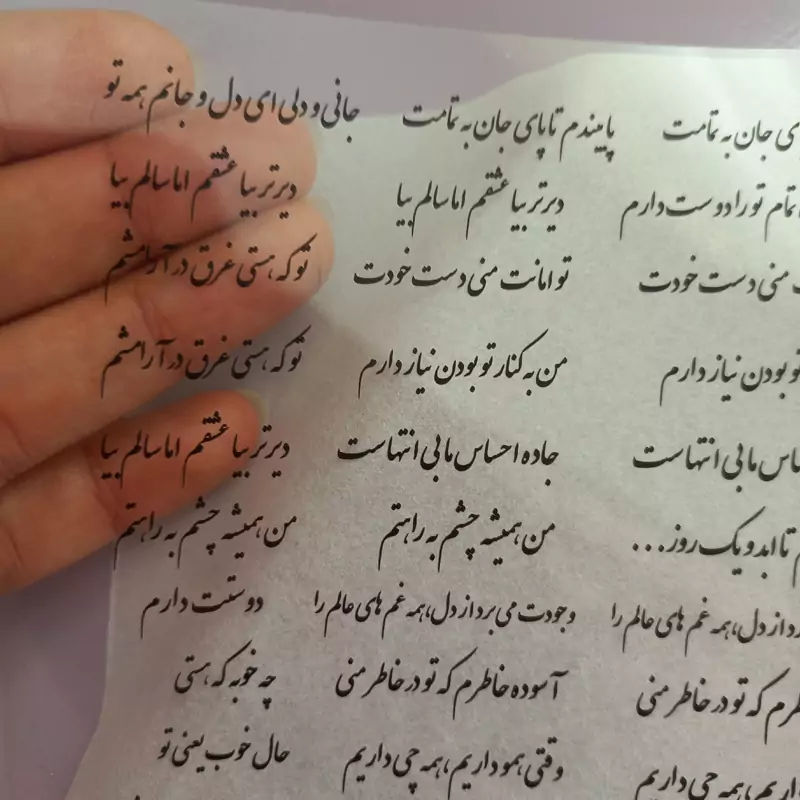 ی جان به تمامت پایبندم تا پای جان به تمامت جانی و دلی ای دل و جانم همه تو
تمام تو را دوست دارم دیرتر بیا عشقم اما سالم بیا دیرتر بیا عشقم اما سالم بیا
منی دست خودت تو امانت منی دست خودت تو که هستی غرق در آرامشم
تو بودن نیاز دارم من به کنار تو بودن نیاز دارم تو که هستی غرق در آرامشم
اس ما بی انتهاست جاده احساس ما بی انتهاست دیرتر بیا عشقم اما سالم بیا
تا ابد و یک روز... من همیشه چشم به راهتم من همیشه چشم به راهتم
رد از دل، همه غم های عالم را وجودت می برد از دل، همه غم های عالم را دوستت دارم
طرم که تو در خاطر منی آسوده خاطرم که تو در خاطر منی چه خوبه که هستی
داریم، همه چی داریم وقتی همو داریم، همه چی داریم حال خوب یعنی تو